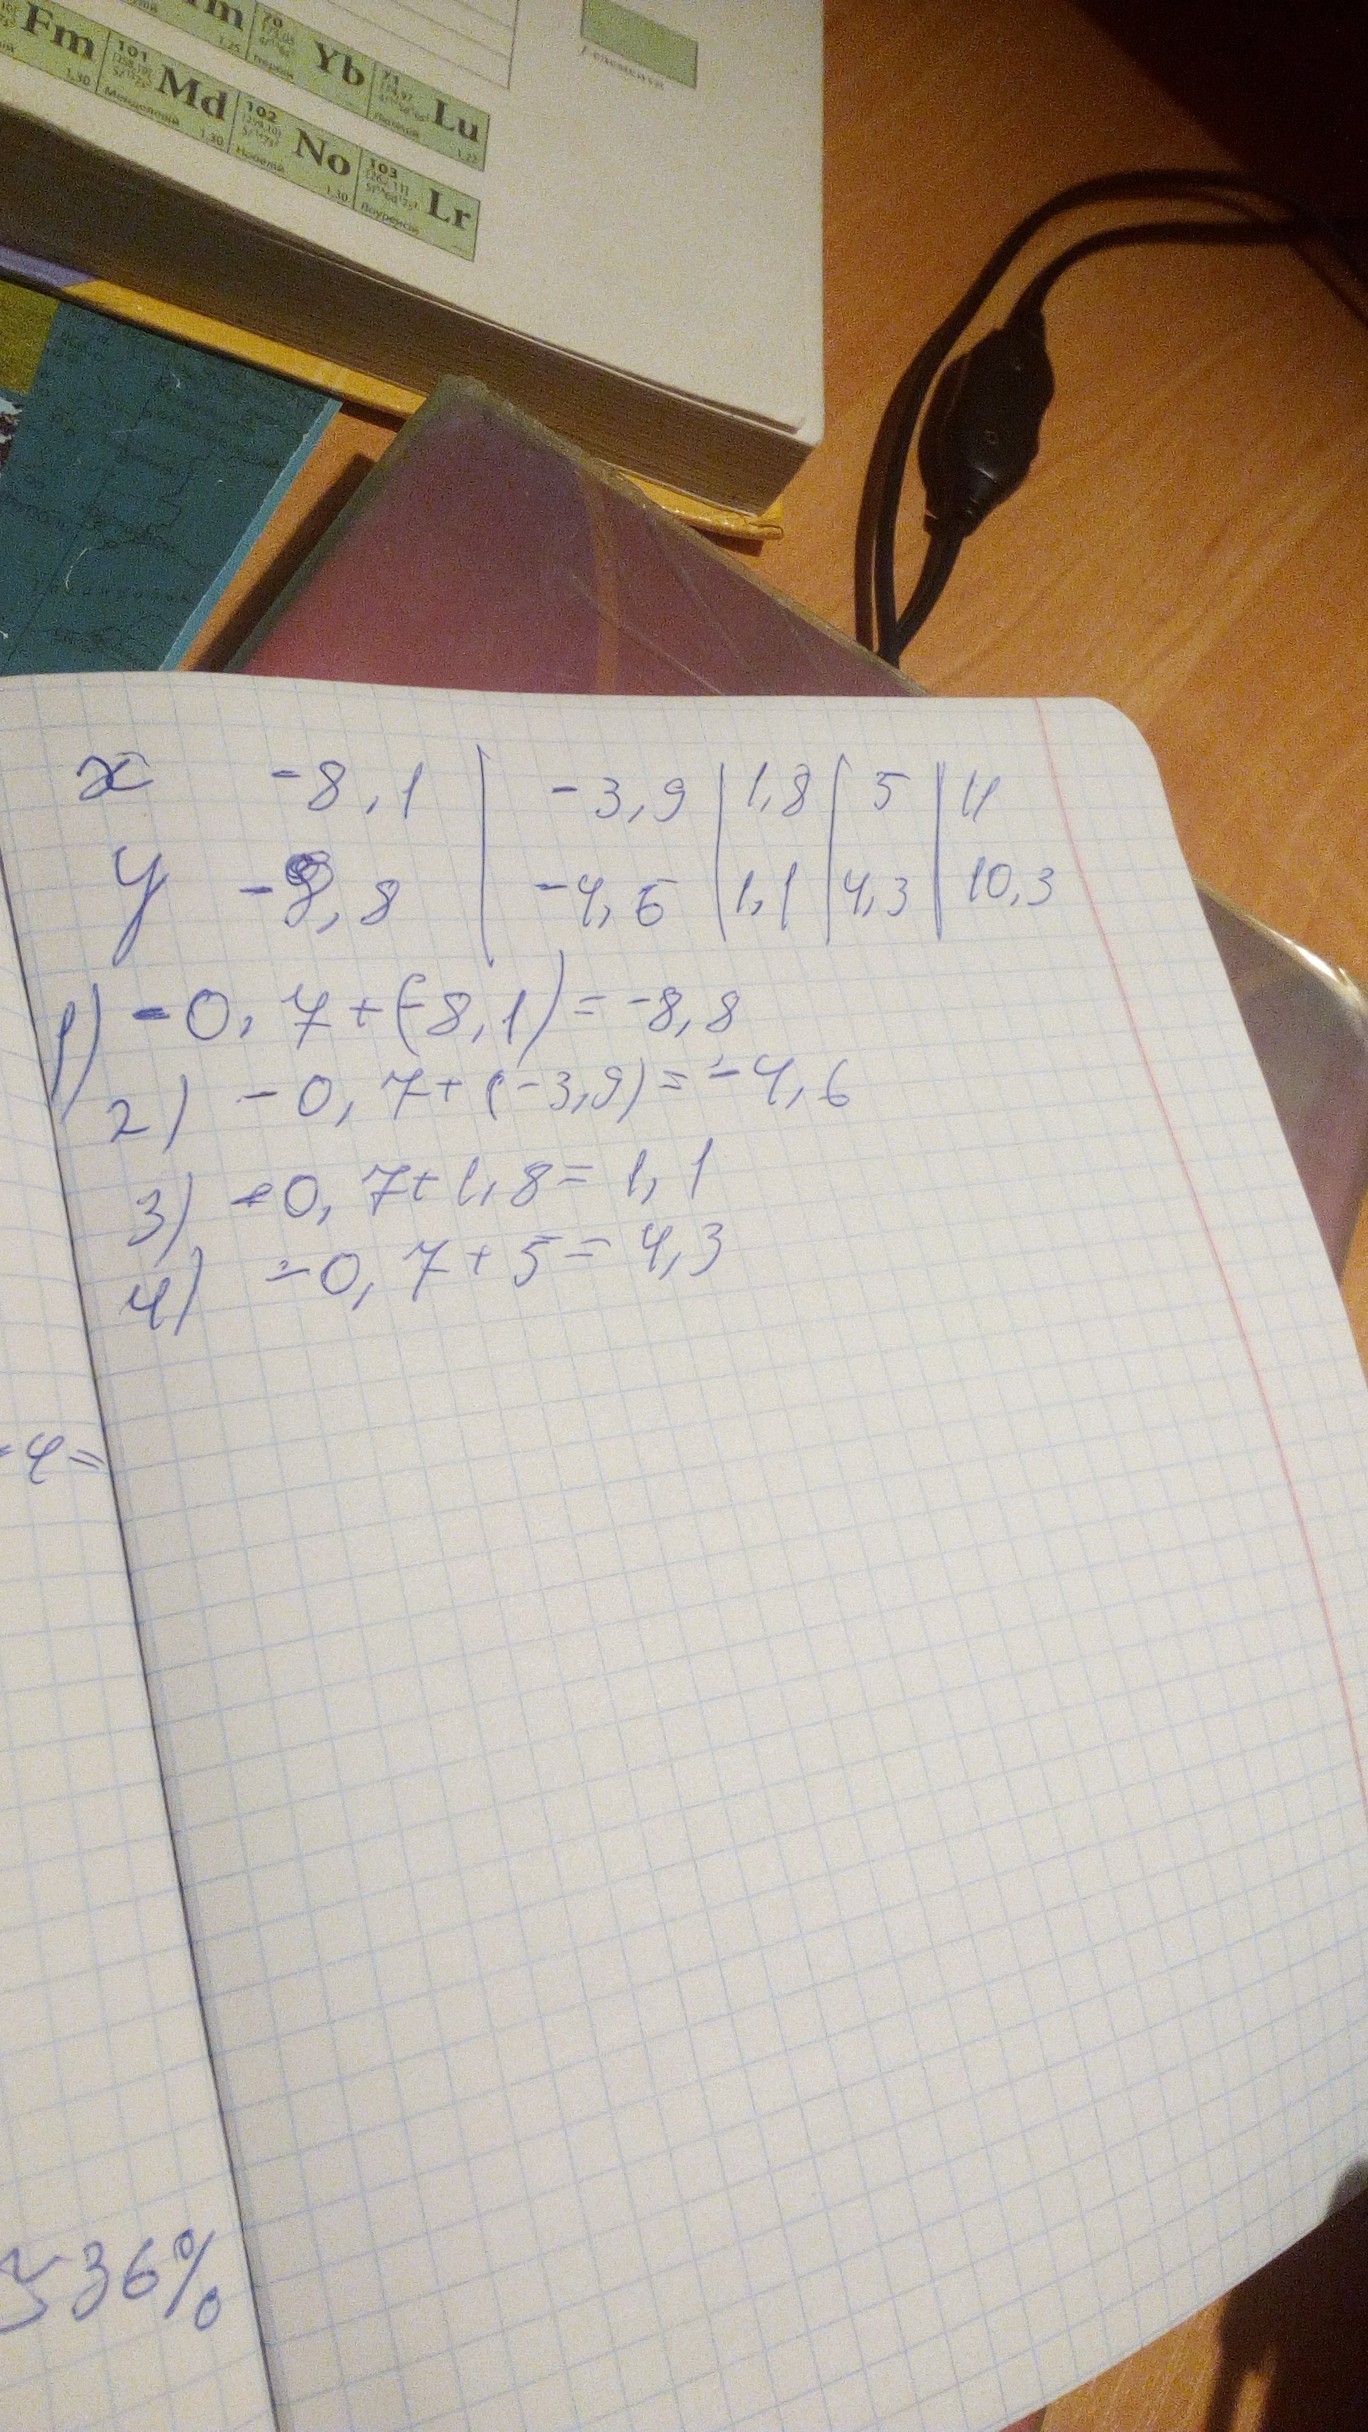 Fm
101 Md
Менделевий 1.30
70 Yb
102 No
Нобелий 1.30
71 Lu
Лютеций 1.22
103 Lr
Лоуренсий
f-элементы
x -8,1 | -3,9 | 1,8 | 5 | 11
y -8,8 | -4,6 | 1,1 | 4,3 | 10,3
1) -0,7+(-8,1)=-8,8
2) -0,7+(-3,9)=-4,6
3) -0,7+1,8=1,1
4) -0,7+5=4,3
-4=
≈36%